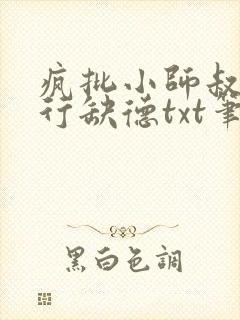 疯批小师叔
行缺德txt笔
黑白色調